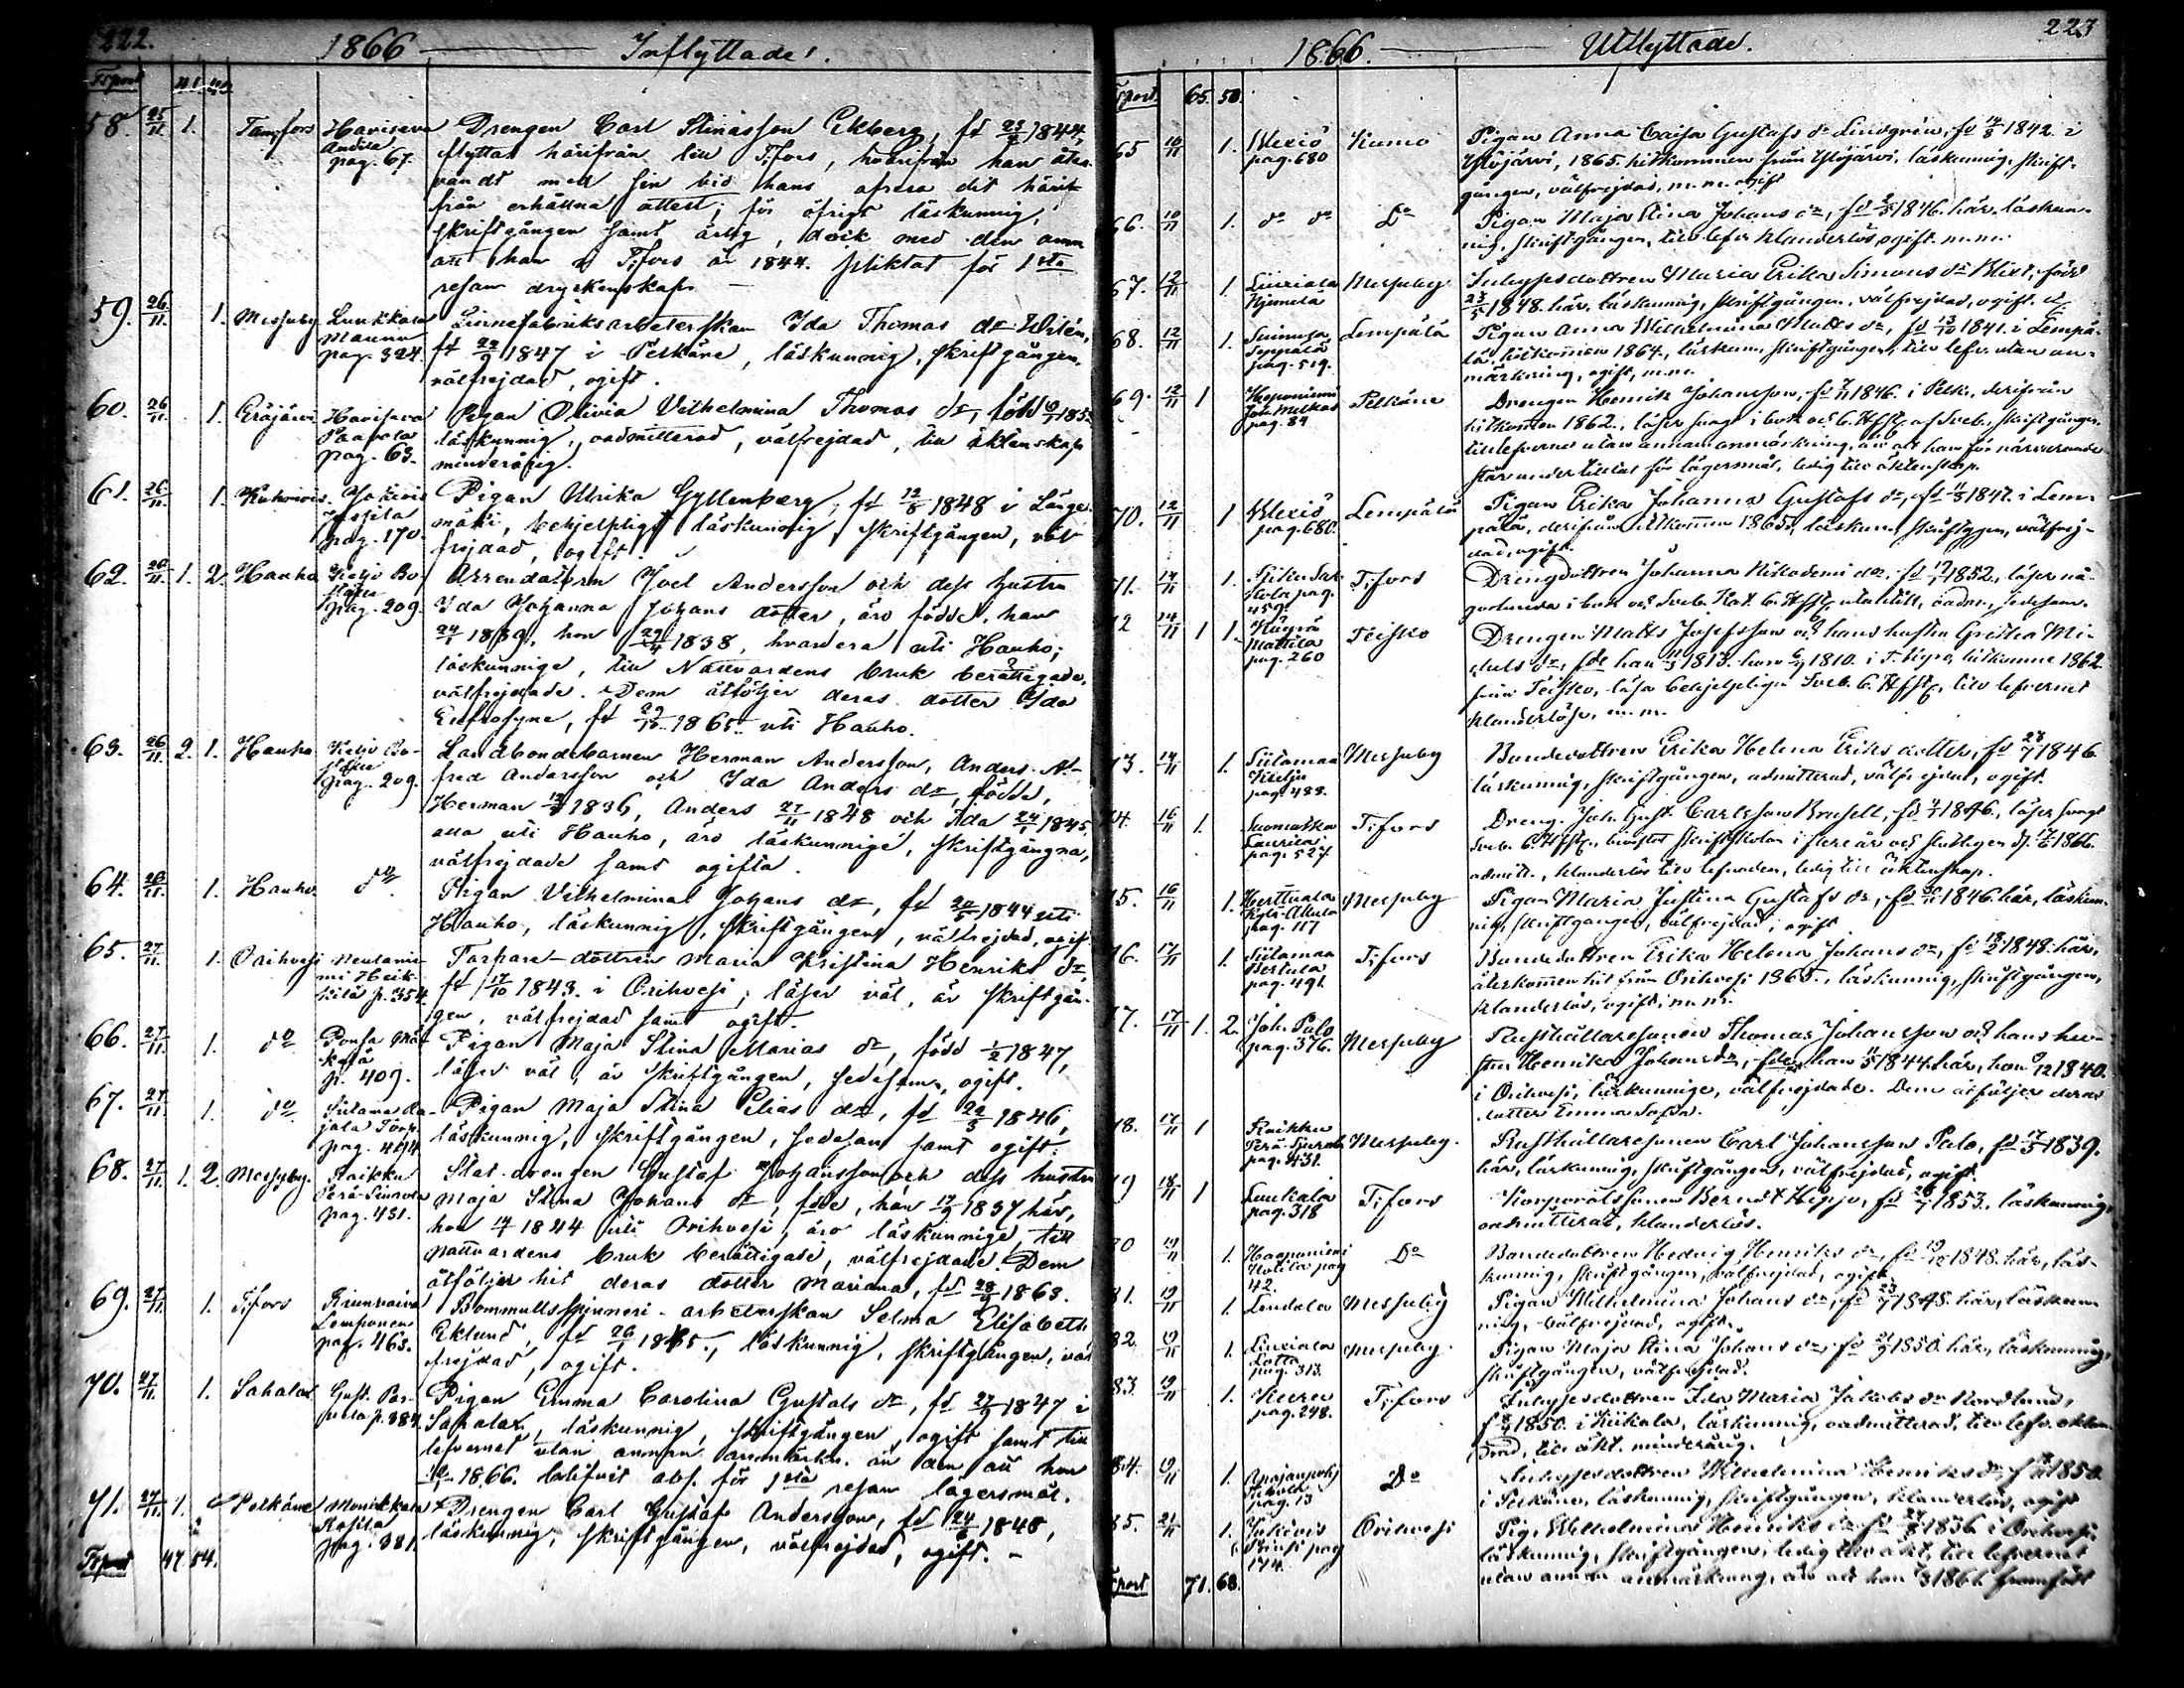 222.
1866 Inflyttade.
Tsport 41. 42.
58. 25/11. 1. Tamfors Havisevа pag. 67. Drengen Carl Stinasson Ekberg, fd 23/2 1844,
flyttat härifrån till T:fors, hvarifrån han åter-
vändt med sin vid hans afresa dit härit-
från erhållna attest; för öfrigt läskunnig,
skriftgången samt ärlig, dock med den anm
att han i T:fors år 1844. pliktat för 1sta
resan dryckenskap. —
59. 26/11. 1. Messuby Lunkkala Maunu pag. 324. Linnefabriksarbeterskan Ida Thomas dr Wilén,
fd 22/9 1847 i Pelkäne, läskunnig, skriftgången,
välfrejdad, ogift.
60. 26/11. 1. Eräjärvi Havisava Paavola pag. 63. Pigan Olivia Vilhelmina Thomas dr, född 6/7 185
läskunnig, oadmitterad, välfrejdad, till äktenskap
minderårig.
61. 26/11. 1. Kuhmois Jokiois Jussila pag. 170. Pigan Ulrika Gyllenberg, fd 12/8 1848 i Länge-
mäki, behjelpligt läskunnig, skriftgången, väl-
frejdad, ogift.
62. 26/11. 1. 2. Hauho pag. 209. Arrendatorn Joel Andersson och dess hustru
Ida Johanna Johans dotter, äro födde, han
24/1 1839, hon 29/4 1838, hvardera uti Hauho;
läskunnige, till Nattvardens bruk berättigade,
välfrejdade. Dem åtföljer deras dotter Ida
Eufrosyne, fd 29/10 1865 uti Hauho.
63. 26/11. 2. 1. Hauho pag. 209. Landbondebarnen Herman Andersson, Anders Al-
fred Andersson och Ida Anders dr, födde,
Herman 1836, Anders 27/11 1848 och Ida 24/1 1845,
alla uti Hauho, äro läskunnige, skriftgångna,
välfrejdade samt ogifta.
64. 26/11. 1. Hauho. do Pigan Vilhelmina Johans dr, fd 20/5 1844 uti
Hauho, läskunnig, skriftgången, välfrejdad, ogift
65. 27/11. 1. Orihvesi Neulanie- mi Heik- kilä p. 354 Torpare-dottren Maria Kristina Henriks dr,
fd 17/10 1843. i Orihvesi, läser väl, är skriftgån-
gen, välfrejdad samt ogift.
66. 27/11. 1. do Ponsa p. 409. Pigan Maja Stina Marias dr, född 1/2 1847,
läser väl, är skriftgången, sedesam, ogift.
67. 27/11. 1. do pag. 494 Pigan Maja Stina Elias dr, fd 22/3 1846,
läskunnig, skriftgången, sedesam samt ogift.
68. 27/11. 1. 2. Messuby. Kaikku Perä-Sinvola pag. 431. Stat-drengen Gustaf Johansson och dess hustru
Maja Stina Johans dr, födde, han 19/9 1837 här,
hon 14/1 1844 uti Orihvesi, äro läskunnige, till
nattvardens bruk berättigade, välfrejdade. Dem
åtföljer hit deras dotter Mariana, fd 28/9 1863.
69. 27/11. 1. T:fors Lemponen pag. 463. Bommullsspinneri-arbeterskan Selma Elisabeth
Eklund, fd 26/ 1845, läskunnig, skriftgången, väl
frejdad, ogift.
70. 27/11. 1. Sahalax Gust. p. 384. Pigan Emma Carolina Gustafs dr, fd 27/9 1847 i
Sahalax, läskunnig, skriftgången, ogift samt till
lefvernet utan annan anmärkn. än den att hon
1866. blifvit abs. för 1sta resan lägersmål.
71. 27/11. 1. Pelkäne Monikkala Rosila pag. 381. Drengen Carl Gustaf Andersson, fd 24/6 1848,
läskunnig, skriftgången, välfrejdad, ogift. —
Tsport 47. 54.
223
1866. Utflyttade.
Tsport. 65. 50.
65 10/11 1. Wexiö pag. 680 Kumo Pigan Anna Caisa Gustafs dr Lindgrén, fd 14/3 1842. i
Ylöjärvi, 1865. hitkommen från Ylöjärvi, läskunnig, skrift-
gången, välfrejdad, m.m. ogift
66. 10/11 1. do do Do Pigan Maja Stina Johans dr, fd 1846. här. läskun-
nig, skriftgången, till lefv. klanderlös, ogift. m.m.
67. 12/11 1. Liuxiala Messuby Inhysesdottren Maria Erika Simons dr Blixt, född
23/5 1848. här, läskunnig, skriftgången, välfrejdad, ogift.
68. 12/11 1. Suinula pag. 519. Lempälä Pigan Anna Wilhelmina Matts dr, fd 13/10 1841. i Lempä-
lä, hitkommen 1864., läskun., skriftgången, till lefv. utan an-
märkning, ogift, m.m.
69. 12/11 1 Haponiemi pag. 84 Pelkäne Drengen Henrik Johansson, fd 1846. i Pelk., derifrån
hitkommen 1862., läser svagt i bok och C. Hfst. af Sveb., skriftgången,
till lefvernet utan annan anmärkning, än att han för närvarande
står under tilltal för lägersmål, ledig till äktenskap.
70. 12/11 1 Wexiö pag. 680. Lempälä Pigan Erika Johanna Gustafs dr, fd 1847. i Lem-
pälä, derifrån hitkommen 1865., läskun., skriftgn, välfrej-
dad, ogift.
71. 14/11 1. pag. 459. T:fors Drengdottren Johanna Nikodemi dr, fd 1852., läser nå-
1 i bok och Sveb. Kat. C. Hfst. utantill, oadm., sedesam.
72 14/11 1 1. Mattila pag. 260 Teisko Drengen Matts Josefsson och hans hustru Gretha Mi-
chels dr, fde han 1813. hon 1810. i T. Kyro, hitkomne 1862
från Teisko, läsa behjelpligen Sveb. C. Hfst., till lefvernet
klanderlöse, m.m.
73. 14/11 1. Siitamaa pag. 488. Messuby Bondedottren Erika Helena Eriks dotter, fd 1846
läskunnig, skriftgången, admitterad, välfrejdad, ogift.
74. 16/11 1. Suomatka Laurila pag. 527. T:fors Dreng. Joh. Gust. Carlsson Brusell, fd 1846., läser svagt
Sveb. C. Hfst., bivistat skriftskolan i flere år och slutligen d. 1866.
admitt., klanderlös till lefnaden, ledig till äktenskap.
75. 16/11 1. Herttuala pag. 117 Messuby Pigan Maria Justina Gustafs dr, fd 1846. här, läskun-
nig, skriftgången, välfrejdad, ogift
76. 17/11 1. Siitamaa Bertula pag. 491. T:fors Bondedottren Erika Helena Johans dr, fd 18/2 1848. här,
återkommen hit från Orihvesi 1865., läskunnig, skriftgången,
klanderlös, ogift, m.m.
77. 17/11 1. 2. Joh. Palo pag. 376. Messuby Rusthållaresonen Thomas Johansson och hans hu-
stru Henrika Johans dr, fde, han 1844. här, hon 1840.
i Orihvesi, läskunnige, välfrejdade. Dem åtföljer deras
dotter Emma Sofia.
78. 17/11 1 Kaikku pag. 431. Messuby. Rusthållaresonen Carl Johansson Palo, fd 17/5 1839.
här, läskunnig, skriftgången, välfrejdad, ogift.
79 18/11 1 Luukala pag. 318 T:fors Korporalssonen Berndt Hippi, fd 1853. läskunnig,
oadmitterad, klanderlös.
80 19/11 1. Haaponiemi pag 42. Do Bondedottren Hedvig Henriks dr, fd 19/12 1848. här, läs-
kunnig, skriftgången, välfrejdad, ogift.
81. 19/11 1. Lindala Messuby Pigan Wilhelmina Johans dr, fd 23/7 1848. här, läskun
nig, välfrejdad, ogift.
82. 19/11 1. Liuxiala pag. 313. Messuby. Pigan Maja Stina Johans dr, fd 1850. här, läskunnig,
skriftgången, välfrejdad.
83. 19/11 1. pag. 248. T:fors Inhysesdottren Ida Maria Jakobs dr Nordlund,
fd 1850. i Kiikala, läskunnig, oadmitterad, till lefv. oklan-
drad, till äkt. minderårig.
84. 19/11 1. pag. 13 Do Inhysesdottren Wilhelmina Henriks dr fd 1850
i Pelkäne, läskunnig, skriftgången, klanderlös, ogift
85. 21/11 1. Jokiois pag 174. Orihvesi Pig. Wilhelmina Henriks dr fd 1836 i Orihvesi,
läskunnig, skriftgången, ledig till äkt., till lefvernet
utan annan anmärkning, än att hon 1861 framfödt
Tsport 71. 68.